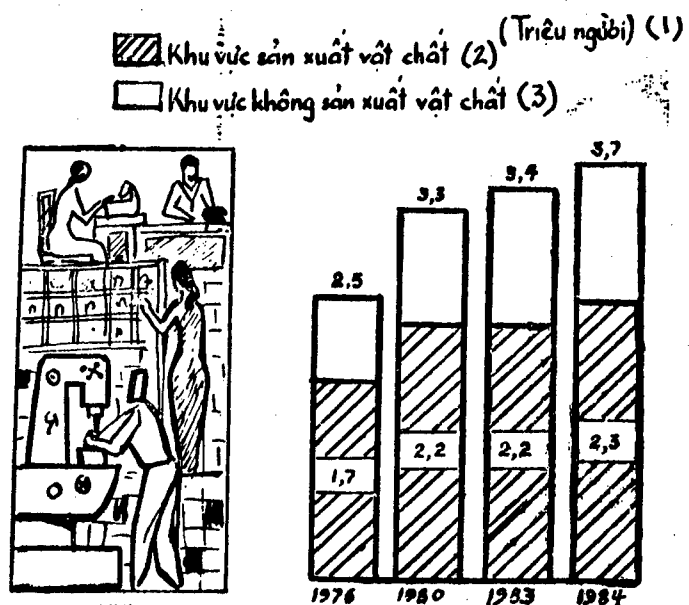 (Triệu người) (1)
Khu vực sản xuất vật chất (2)
Khu vực không sản xuất vật chất (3)
2,5 3,3 3,4 3,7
1,7 2,2 2,2 2,3
1976 1980 1983 1984